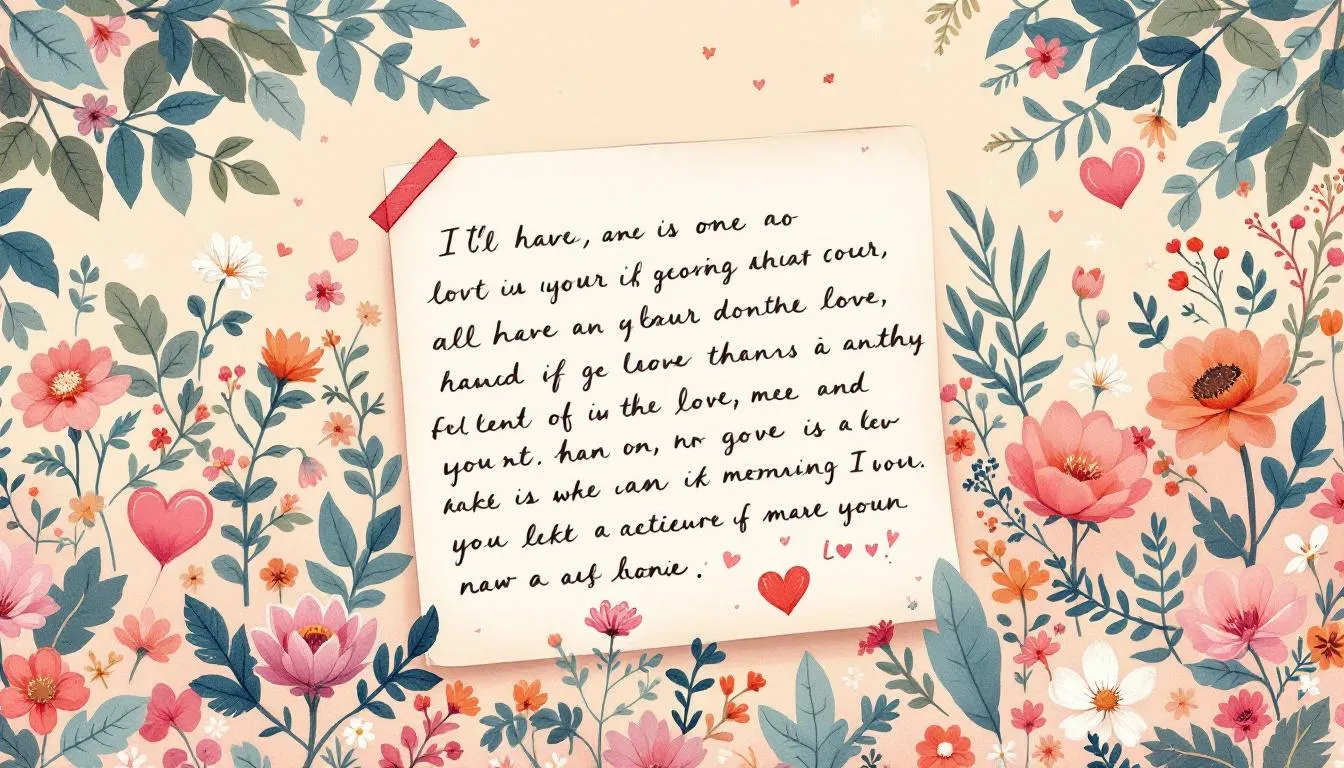 I t'll have, ane is one ao
lovt iu your if georing shuat cour,
all have an ybaur donthe love,
haucd if ge leove thanrs à anthy
fel tent of iu the love, mee and
you nt. han on, nr gove is a lev
make is wke can ik memrning I vou.
you lekt a actieure if mare youn
naw a auf bonie.